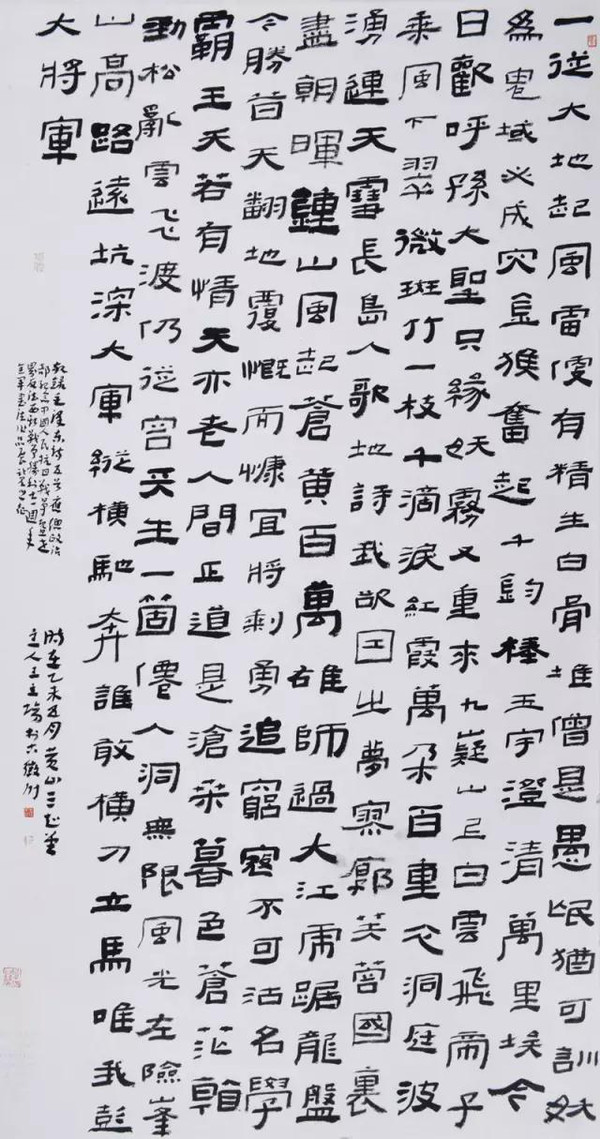 一從大地起風雷便有精生白骨堆僧是愚氓猶可訓妖
爲鬼域必成災金猴奮起千鈞棒玉宇澄清萬里埃今
日歡呼孫大聖只緣妖霧又重來九嶷山上白雲飛帝子
乘風下翠微斑竹一枝千滴淚紅霞萬朵百重衣洞庭波
湧連天雪長島人歌地詩我欲因之夢寥廓芙蓉國裏
盡朝暉鐘山風起蒼黃百萬雄師過大江虎踞龍盤
今勝昔天翻地覆慨而慷宜將剩勇追窮寇不可沽名學
霸王天若有情天亦老人間正道是滄桑暮色蒼茫看
勁松亂雲飛渡仍從容天生一箇僊人洞無限風光在險峯
山高路遠坑深大軍縱橫馳奔誰敢橫刀立馬唯我彭
大將軍
毛澤東詩五首應總政治
部紀念中國人民抗日戰爭暨世
界反法西斯戰爭勝利七十週年
全軍書法作品展
時在乙未五月黄山三
主人王立